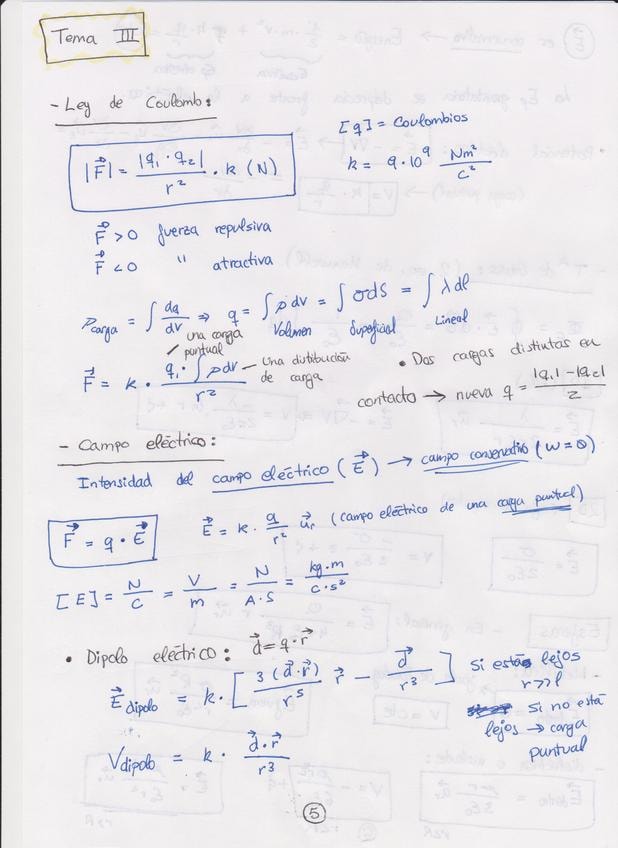 Tema III
- Ley de Coulomb:
|F⃗| = |q₁ · q₂| / r² · k (N)
[q] = Coulombios
k = 9·10⁹ Nm² / C²
F⃗ > 0 fuerza repulsiva
F⃗ < 0 " atractiva
ρcarga = ∫ dq/dv ⇒ q = ∫ ρ dv = ∫ σ dS = ∫ λ dl
Volumen Superficial Lineal
una carga puntual
F⃗ = k · q₁ · ∫ρdv / r² — Una distibución de carga
• Dos cargas distintas en
contacto → nueva q = |q₁|-|q₂| / 2
- Campo eléctrico:
Intensidad del campo eléctrico (E⃗) → campo conservativo (W=0)
F⃗ = q · E⃗
E⃗ = k · q/r² u⃗r (campo eléctrico de una carga puntual)
[E] = N/C = V/m = N/A·S = kg·m / C·s²
• Dipolo eléctrico: d⃗ = q · r⃗
E⃗ dipolo = k · [ 3(d⃗·r⃗) / r⁵ r⃗ - d⃗ / r³ ]
Si estás lejos
r>>l
Si no está
lejos → carga
puntual
Vdipolo = k · d⃗·r⃗ / r³
5